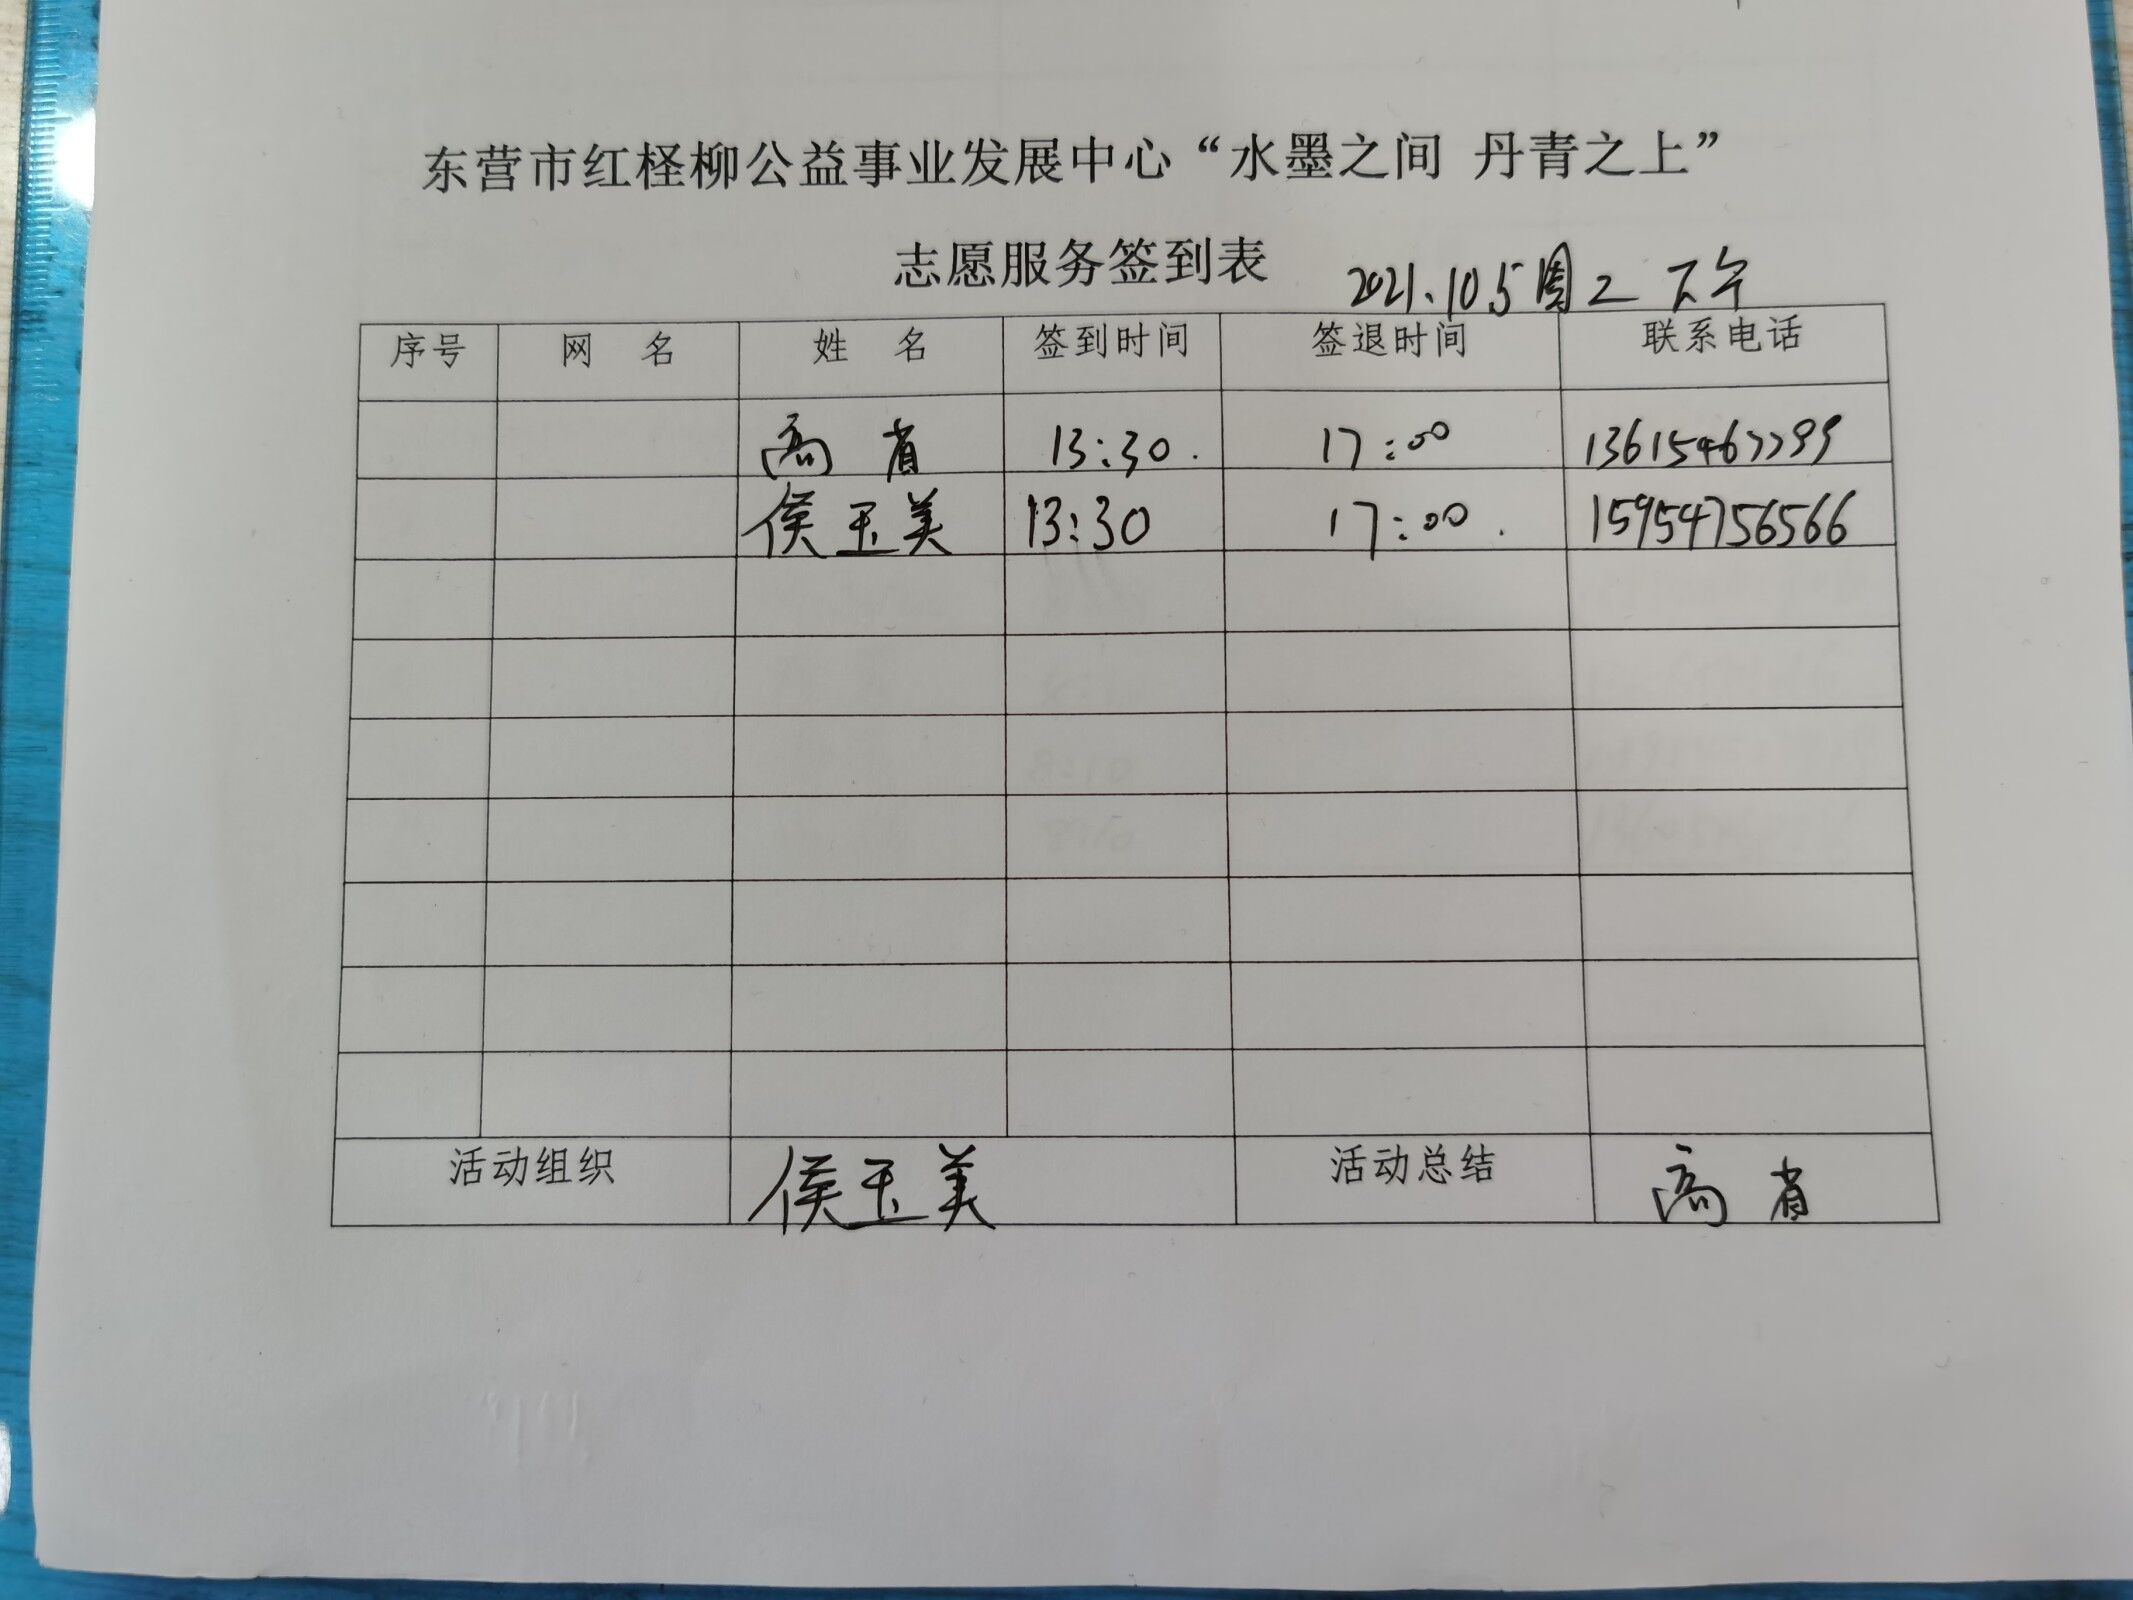 东营市红柽柳公益事业发展中心“水墨之间 丹青之上”
志愿服务签到表 2021.10.5周二 下午
序号 网 名 姓 名 签到时间 签退时间 联系电话
高 省 13:30. 17:00
侯玉美 13:30 17:00. 15954756566
活动组织 侯玉美 活动总结 高 省